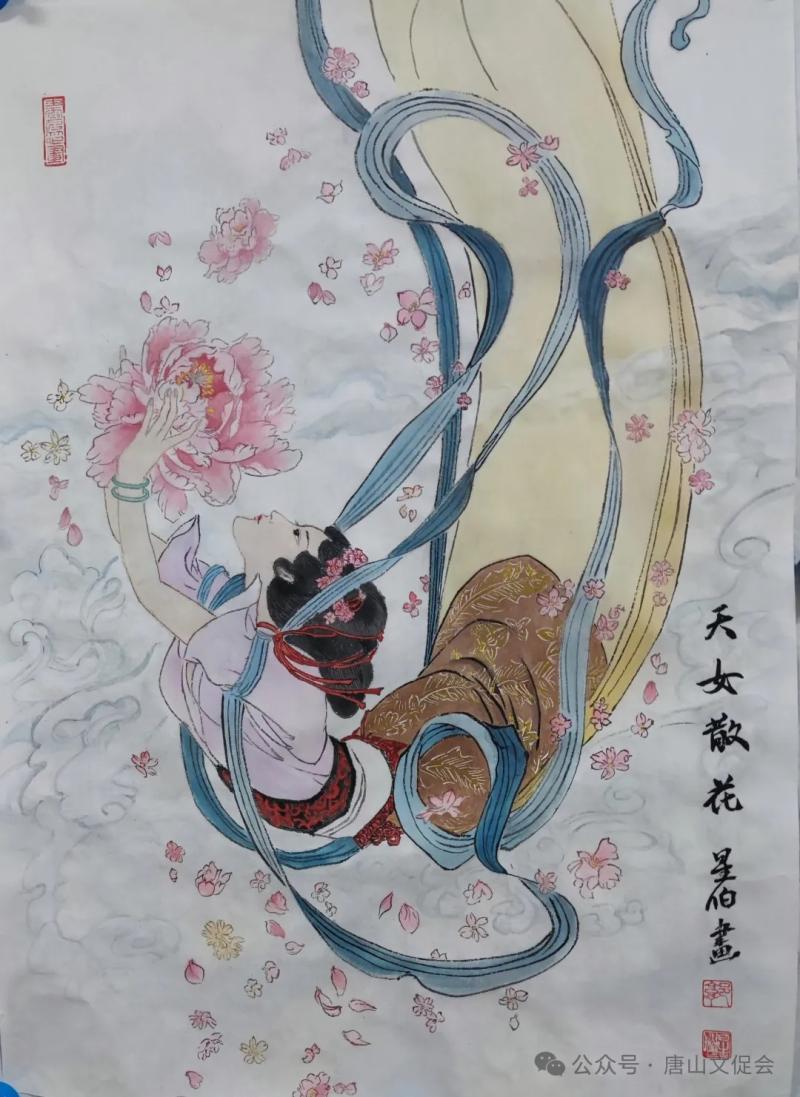 天女散花
星伯畫
公众号·唐山文促会